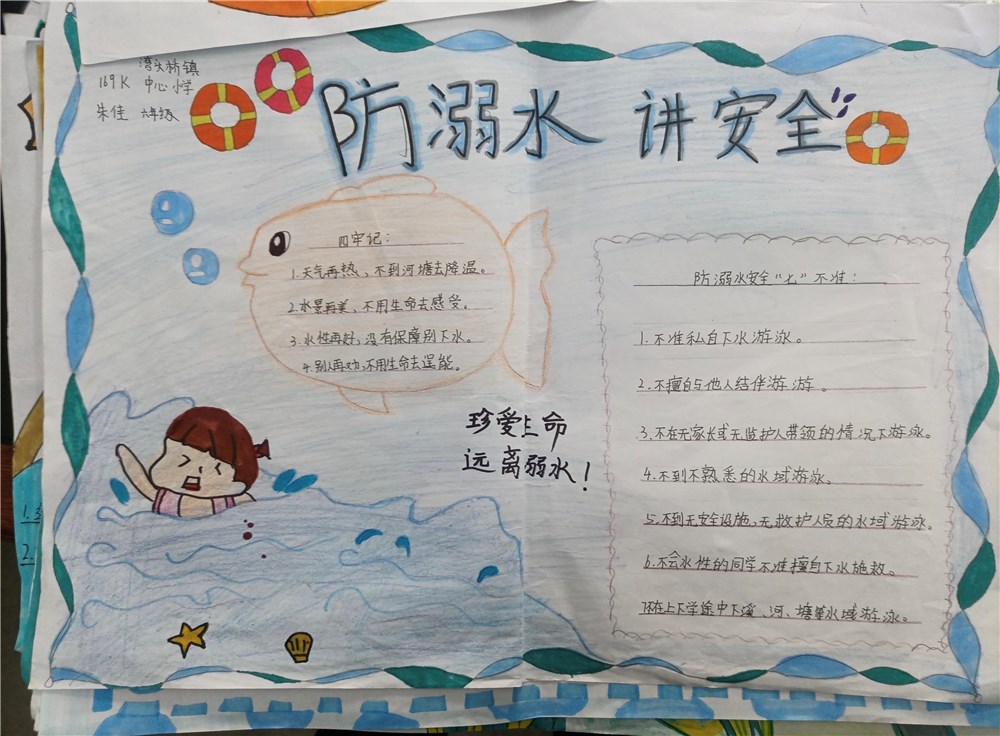 湾头桥镇
169K 中心小学
朱佳 六年级
防溺水 讲安全
四牢记：
1.天气再热，不到河塘去降温。
2.水景再美，不用生命去感受。
3.水性再好，没有保障别下水。
4.别人再劝，不用生命去逞能。
珍爱生命
远离弱水！
防溺水安全“七”不准：
1.不准私自下水游泳。
2.不擅自与他人结伴游游。
3.不在无家长或无监护人带领的情况下游泳。
4.不到不熟悉的水域游泳。
5.不到无安全设施，无救护人员的水域游泳。
6.不会水性的同学不准擅自下水施救。
7.不在上下学途中下溪、河、塘等水域游泳。
1.3
2.